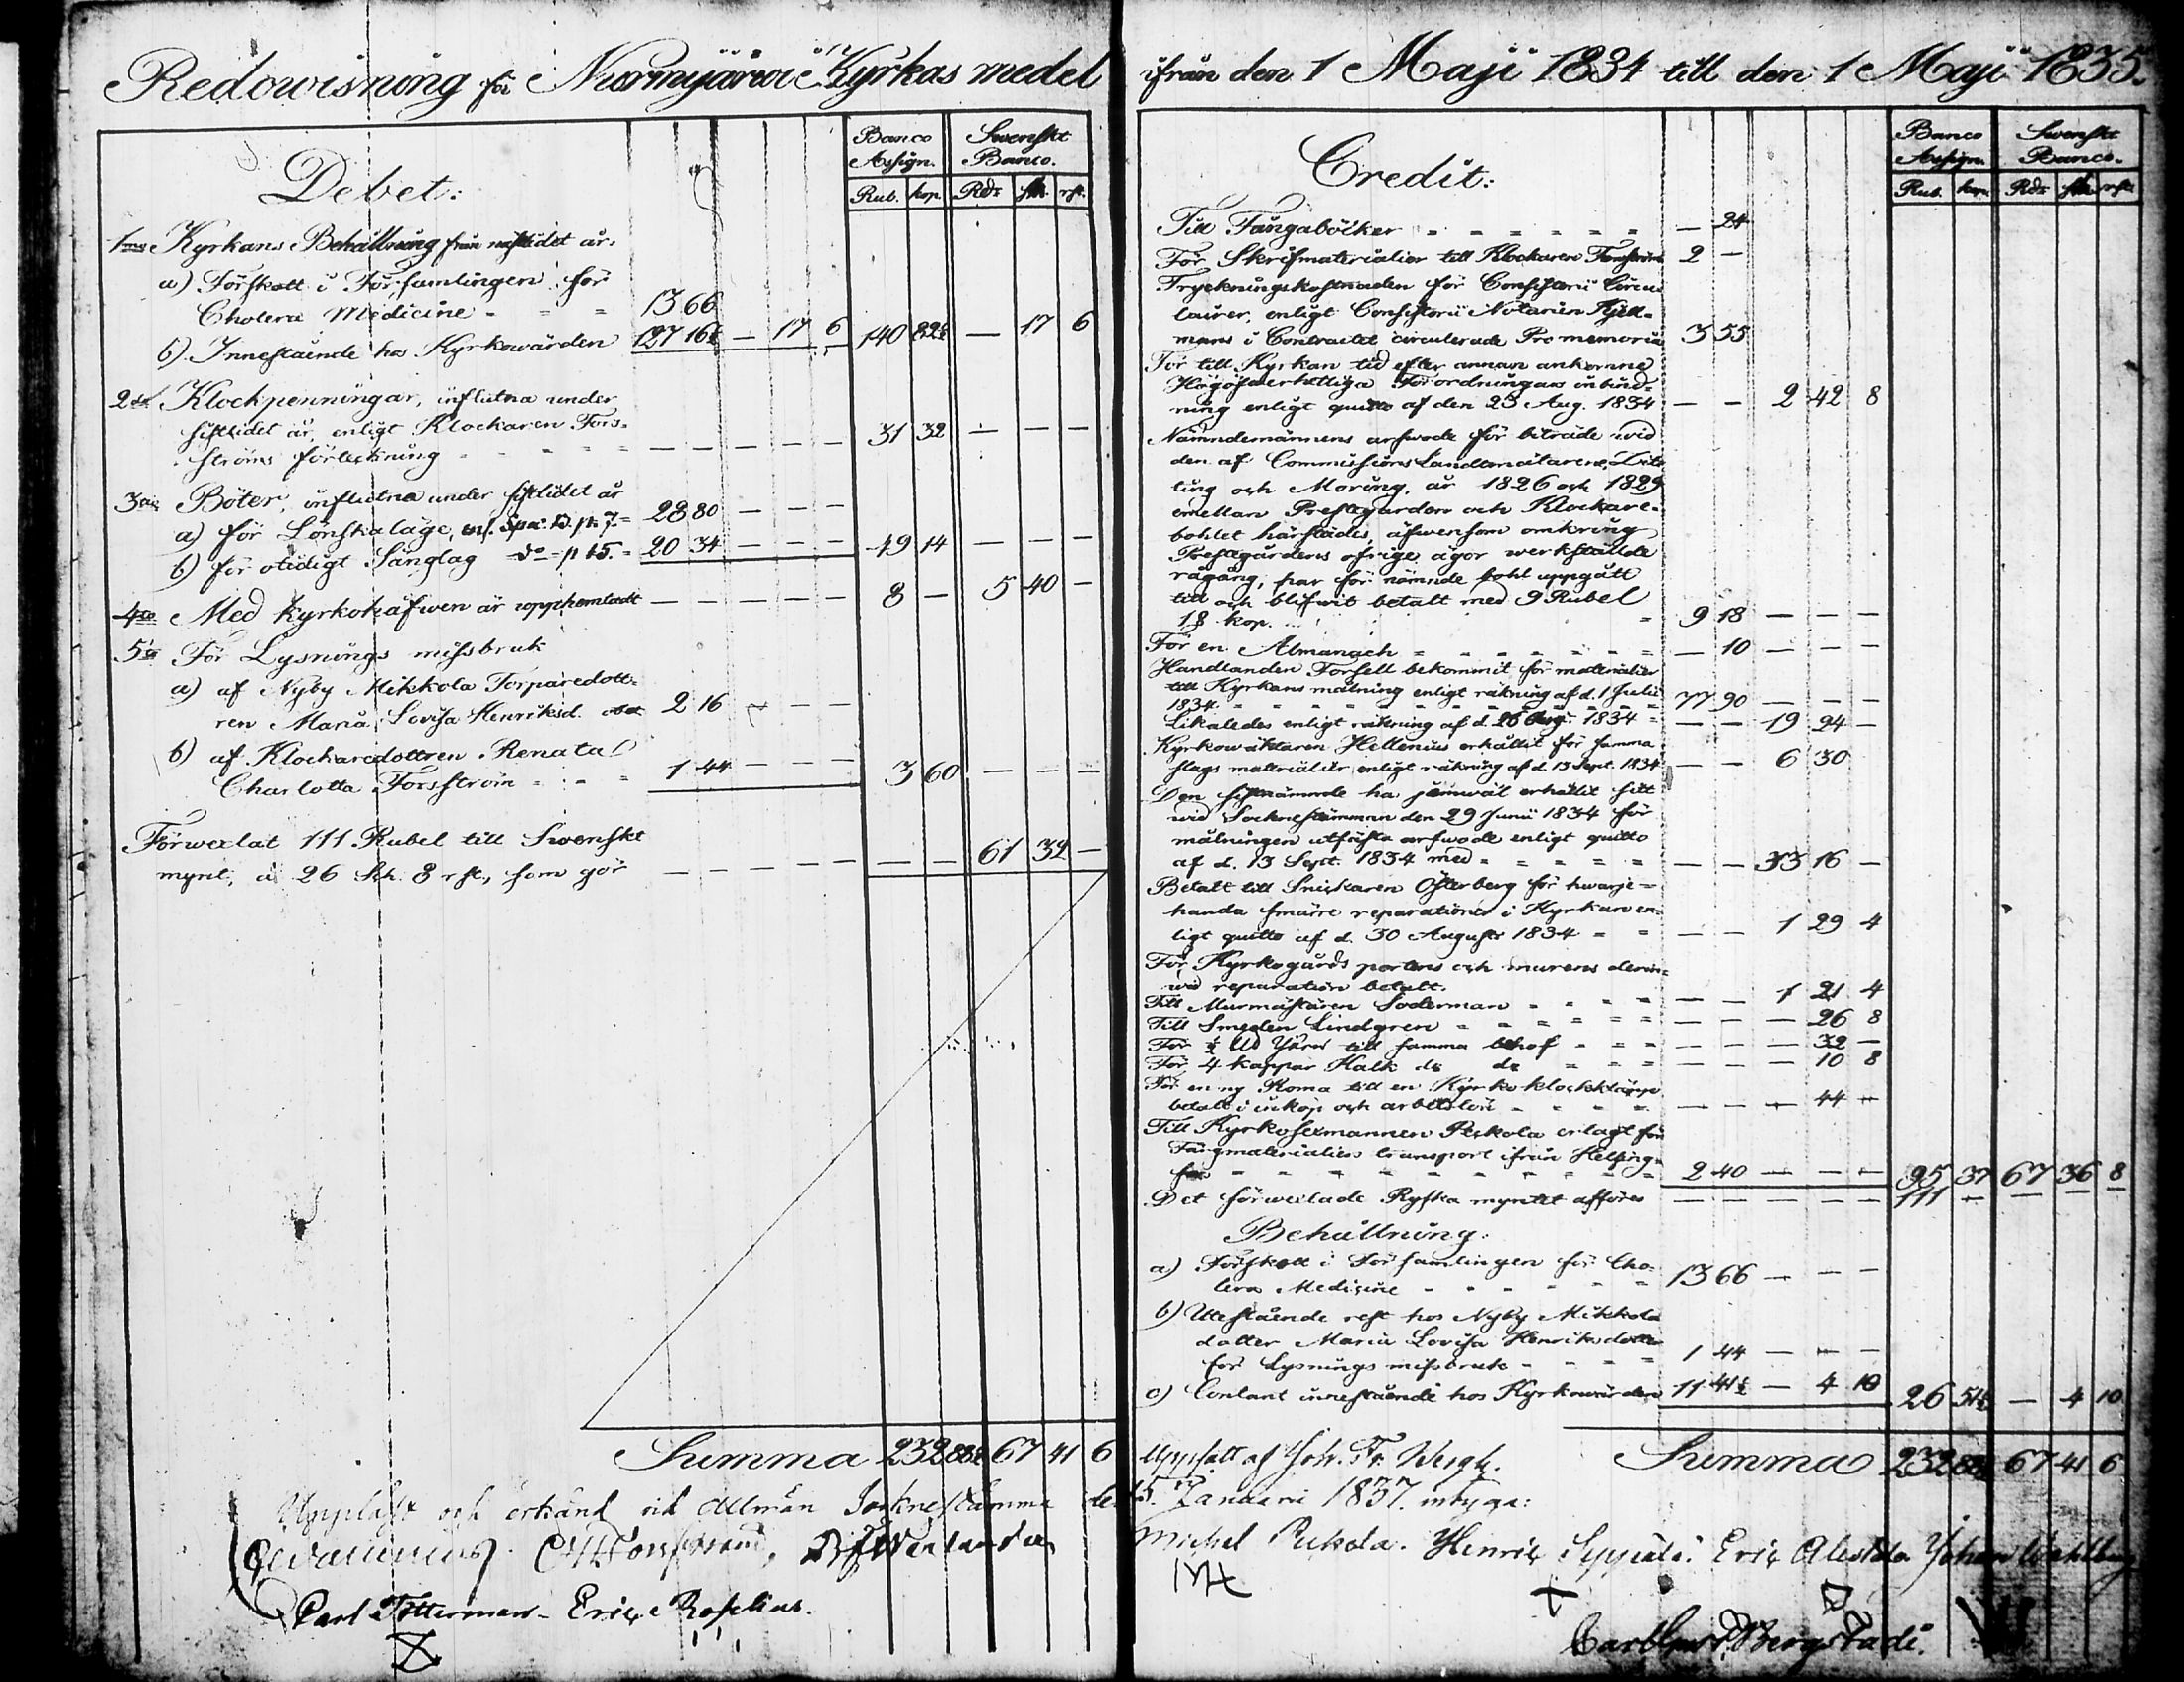 Redowisning för Nurmijärwi Kyrkas medel ifrån den 1 Maji 1834 till den 1 Maji 1835.
Debet:
Banco Assign. Swenskt Banco.
Rub. kop. Rdr sk. rst.
1mo Kyrkans Behållning från nästlidet år:
a) Förskott i Församlingen för
Cholera Medicine - - = 13 66
b) Innestående hos Kyrkowärden 127 16½ — 17 6 140 82½ — 17 6
2do Klockpenningar, influtna under
sistlidet år, enligt Klockaren Fors-
ströms förteckning — — — — — 31 32 — — —
3tio Böter, influtna under sistlidet år
a) för Lönskaläge, p. 7. = 28 80 — — —
b) för otidigt Sänglag do p 15. = 20 34 — — — 49 14 — — —
4to Med kyrkohåfwen är opphemtadt — — — — — 8 — 5 40 —
5to För Lysnings missbruk
a) af Nyby Mikkola Torparedott-
ren Maria Lovisa Henriksd. 2 16 — — —
b) af Klockaredottren Renata
Charlotta Forsström = - = 1 44 — — — 3 60 — — —
Förwexlat 111 Rubel till Swenskt
mynt, à 26 Sk. 8 rst, som gör — — — — — — — 61 32 —
Summa 232 88½ 67 41 6
Credit:
Banco Assign. Swenskt Banco.
Rub. kop. Rdr sk. rst.
Till Fångaböcker = = = = = = — 24
För Skrifmaterialier till Klockaren Forsström 2 —
Tryckningskostnaden för Consistorii Circu-
lairer, enligt Consistorii Notarien Kjell-
mans i Contractet circulerade Promemoria 3 55
För till Kyrkan tid efter annan ankomne
Högöfwerhetliga Förordningars inbind-
ning enligt quitto af den 23 Aug. 1834 — — 2 42 8
Nämndemännens arfwode för biträde wid
den af Commissions Landtmätarene
ling och Moring, år 1826 och 1829
emellan Prestgården och Klockare-
bohlet härstädes, äfwensom omkring
Prestegårdens öfrige ägor werkstälde
rågång, har för nämnde bohl uppgått
till och blifwit betalt med 9 Rubel
18 kop. = 9 18 — — —
För en Almanach = = = = = = — 10 — — —
Handlanden Forsell bekommit för materialier
till Kyrkans målning enligt räkning af d. 1 Julii
1834 - - - - - - 77 90 — — —
Likaledes enligt räkning af d. 26 Aug. 1834 = — — 19 24 —
Kyrkowäktaren Hellenius erhållit för samma
slags materialier, enligt räkning af d. 13 Sept. 1834 — — 6 30
Den sistnämnde har jemwäl erhållit sitt
wid Socknestämman den 29 Junii 1834 för
målningen utfästa arfwode enligt quitto
af d. 13 Sept. 1834 med = = = = = — — 33 16 —
Betalt till Snickaren Österberg för hwarje-
handa smärre reparationer i Kyrkan en-
ligt quitto af d. 30 Augusti 1834 = = — — 1 29 4
För Kyrkogårds portens och murens derin-
wid reparation betalt.
Till Murmästaren Söderman - - - — — 1 21 4
Till Smeden Lindgren = = = = = — — — 26 8
För ½ till samma behof = = = — — — 32 —
För 4 kappar Kalk do do = = = — — — 10 8
För en ny Roma till en Kyrko klockkläpp
betalt i inköp och arbetslön - - - — — — 44 —
Till Kyrkosexmannen Peckola erlagt för
Färgmaterialiers transport ifrån Helsing-
fors - - - - - 2 40 — — — 95 37 67 36 8
Det förwexlade Ryska myntet afföres — — — — — 111 — — — —
Behållning.
a) Förskott i Församlingen för Cho-
lera Medicine - - - - 13 66 — — —
b) Utestående rest hos Nyby Mikkola
dotter Maria Lovisa Henriksdotter
för Lysnings missbruk - - - - 1 44 — — —
c) Contant innestående hos Kyrkowärden 11 41½ — 4 10 26 51½ — 4 10
Summa 232 88½ 67 41 6
Uppsatt af Joh. Fr. Bergh.
Uppläst och erkänd vid Allmän Socknestämma den 15. Januari 1837. intyga:
Michel Pekola. Henric Seppälä. Eric Alestalo Johan Wahlberg
Carl Totterman - Eric Roselius.
Carl Gust. Bergstadi.